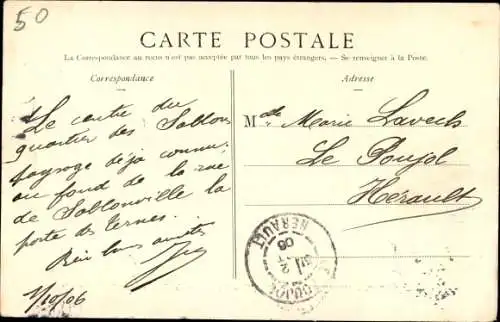 50
CARTE POSTALE
La Correspondance au recto n'est pas acceptée par tous les pays étrangers. — Se renseigner à la Poste.
Correspondance
Adresse
Le centre du
quartier des Sablons
paysage déjà connu
au fond de la rue
de Sablonville la
porte des Ternes.
Bien bonnes amitiés
1/10/06
Mlle Marie Lavech
Le Poujol
Hérault
POUJOL
HERAULT
2
06